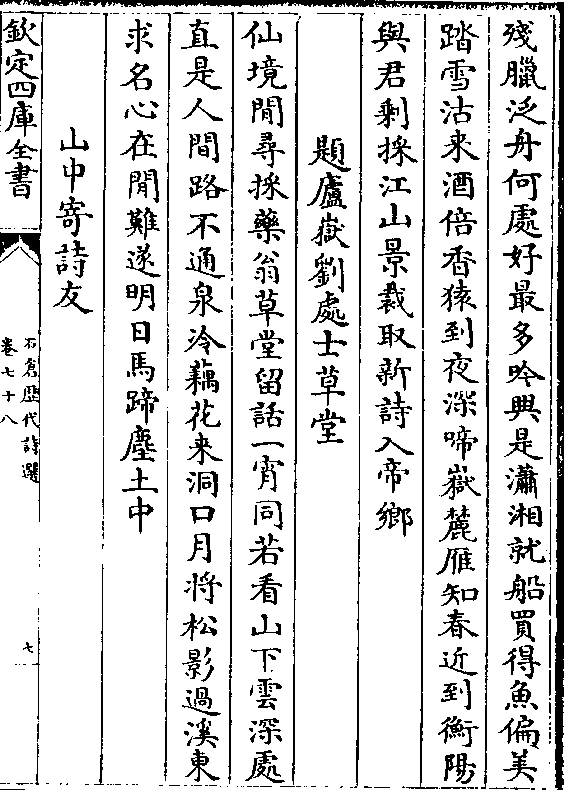 殘臘泛舟何處好最多吟興是瀟湘就船買得魚偏美
踏雪沽来酒倍香猿到夜深啼嶽麓雁知春近到衡陽
與君剩採江山景裁取新詩入帝鄉
題廬嶽劉處士草堂
仙境閒尋採藥翁草堂留話一宵同若看山下雲深處
直是人間路不通泉泠藕花来洞口月將松影過溪東
求名心在閒難遂明日馬蹄塵土中
山中寄詩友
欽定四庫全書
石倉歴代詩選
卷七十八
七